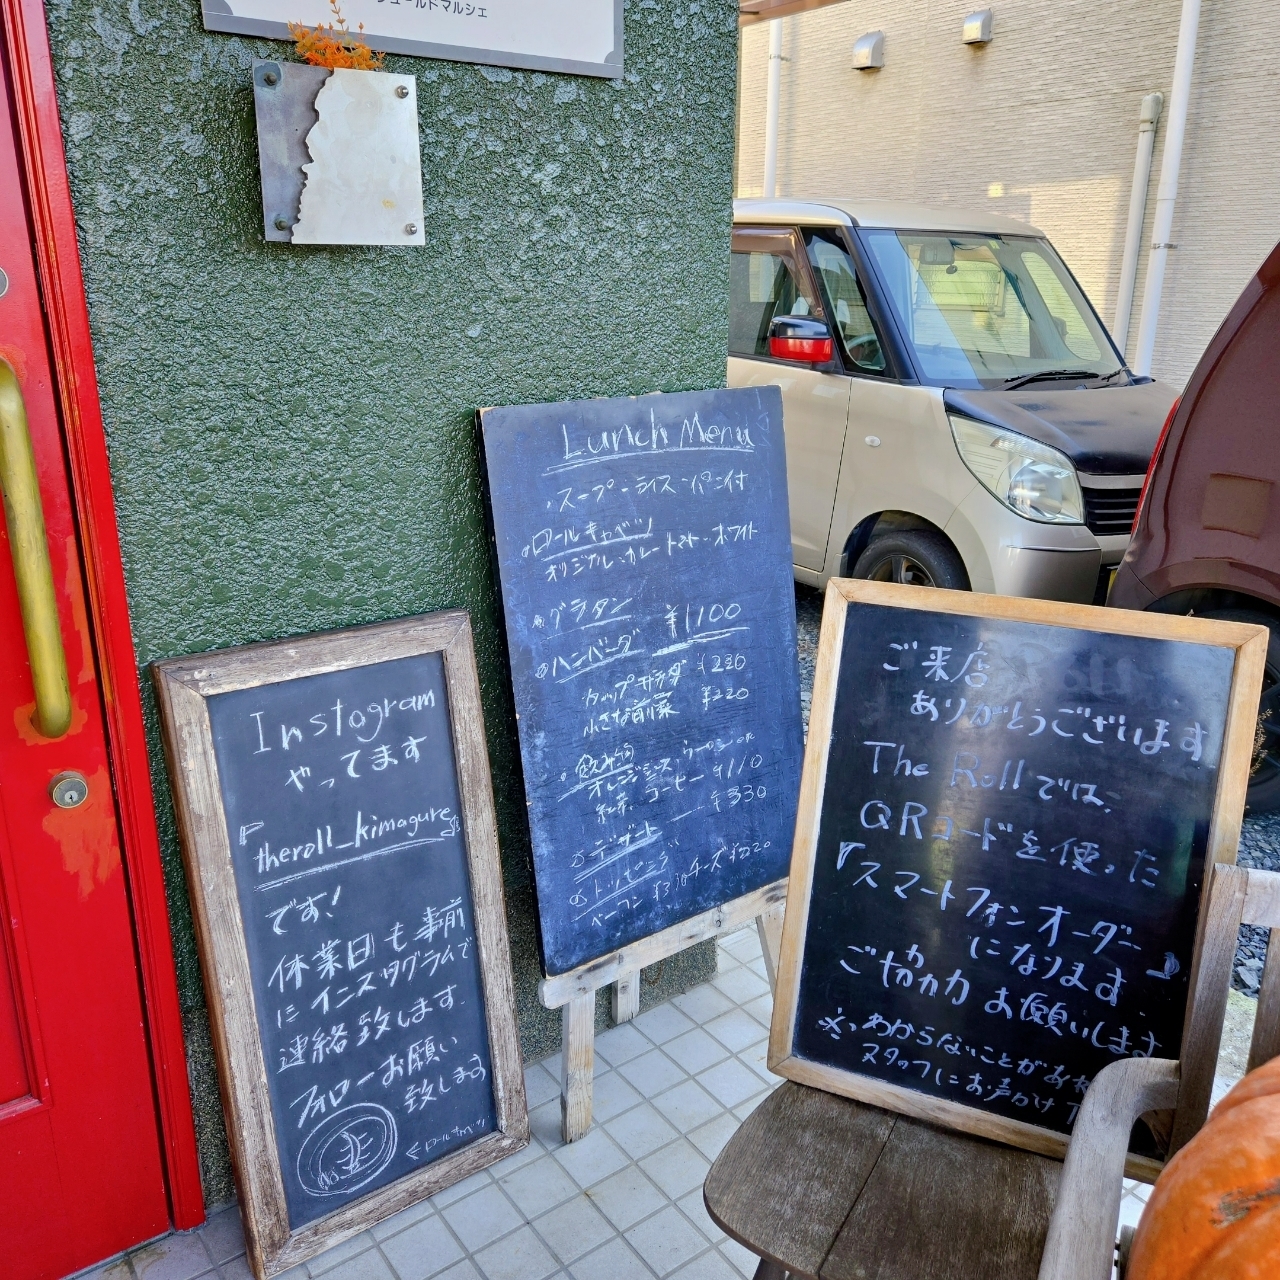 ュールドマルシェ
Instagram
やってます
『theroll_kimagure』
です!
休業日も事前
にインスタグラムで
連絡致します.
フォローお願い
致します
←ロールキャベツ
Lunch Menu
・スープ・ライス・パン付
ロールキャベツ
オリジナル・カレー・トマト・ホワイト
グラタン ¥1100
ハンバーグ
カップサラダ ¥220
小さな前菜 ¥220
飲み物
オレンジジュース・ウーロン or
紅茶・コーヒー ¥110
デザート — ¥330
トッピング
ベーコン ¥330 チーズ ¥220
ご来店
ありがとうございます
The Roll では、
QRコードを使った
『スマートフォンオーダー』
になります
ご協力お願いします
※わからないことがあれ
スタッフにお声かけ下